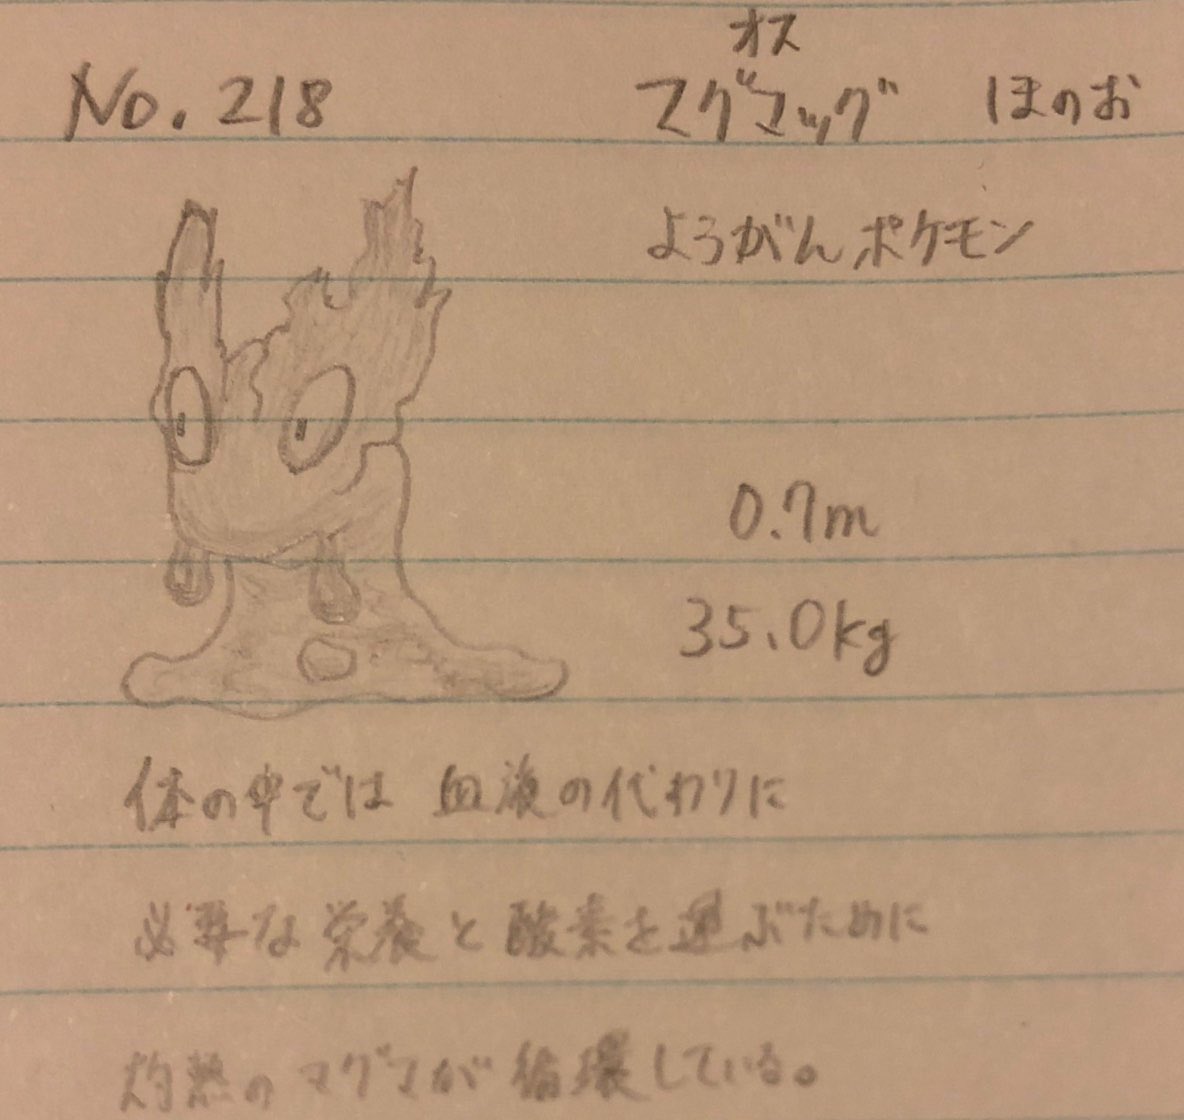 オス
No.218 マグマッグ ほのお
ようがんポケモン
0.7m
35.0kg
体の中では 血液の代わりに
必要な栄養と酸素を運ぶために
灼熱のマグマが循環している。